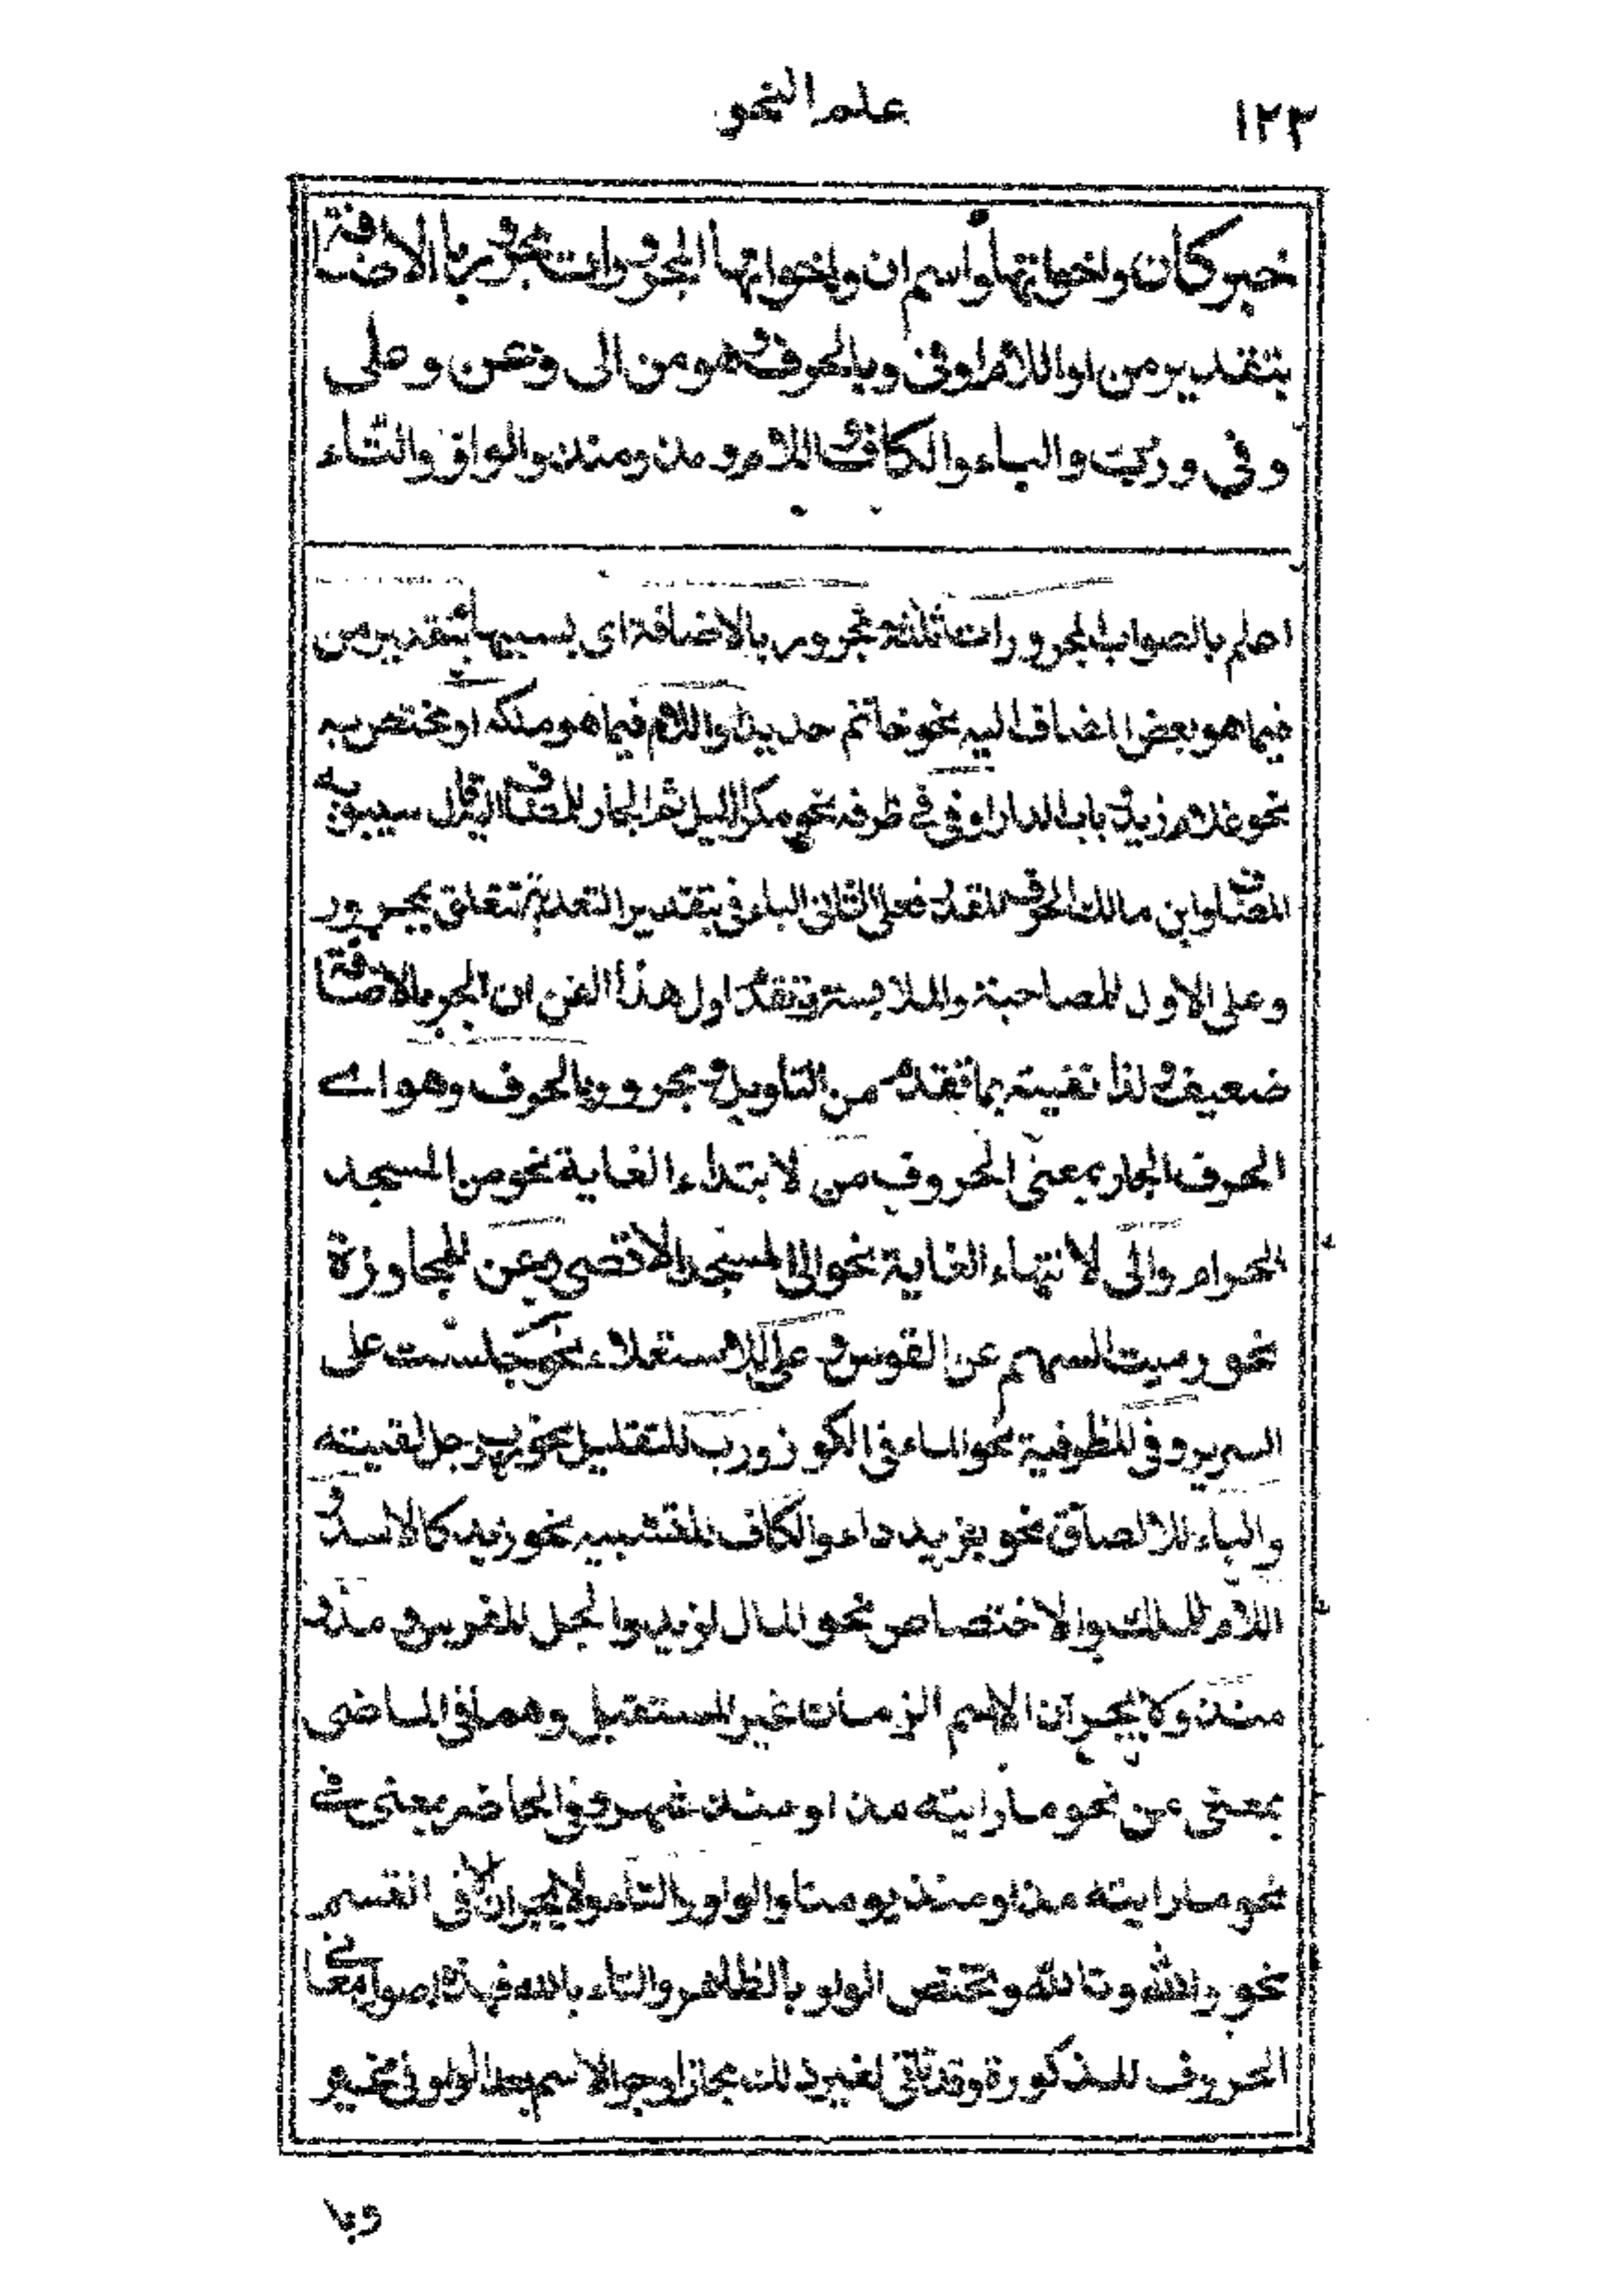 ١٢٣
علم النحو
خبر كان واخواتها واسم ان واخواتها المجرورات مجرور بالاضافة
بتقدير من او اللام او فى وبالحرف وهو من الى وعن وعلى
وفى ورب والباء والكاف واللام ومذ ومنذ والواو والتاء
اعلم بالصواب المجرورات ثلثة مجرور بالاضافة اى بسببها بتقدير من
فيما هو بعض المضاف اليه نحو خاتم حديد او اللام فيما هو ملكه او مختص به
نحو غلام زيد باب الدار او فى فى ظرفه نحو مكر الليل ثم الجار المضاف اليه قال سيبويه
المضاف وابن مالك الحرف المقدر فعلى الثانى الباء فى بتقدير التعدية تتعلق بمجرور
وعلى الاول للمصاحبة والملابسة وتقدم اول هذا الفن ان الجر بالاضافة
ضعيف ولذا تفيته بما تقدم من التاويل ومجرور بالحرف وهو اى
الحرف الجار بمعنى الحروف من لابتداء الغاية نحو من المسجد
الحرام والى لانتهاء الغاية نحو الى المسجد الاقصى وعن للمجاوزة
نحو رميت السهم عن القوس وعلى للاستعلاء نحو جلست على
السرير وفى للظرفية نحو الماء فى الكوز ورب للتقليل نحو رب رجل لقيته
والباء للالصاق نحو بزيد داء والكاف للتشبيه نحو زيد كالاسد و
اللام للملك والاختصاص نحو المال لزيد والجل للفرس و مذ و
منذ ولا يجران الا اسم الزمان غير المستقبل وهما فى الماضى
بمعنى من نحو ما رايته مذ او منذ شهر وفى الحاضر بمعنى فى
نحو ما رايته مذ او منذ يومنا والواو والتاء ولا يجران الا فى القسم
نحو والله وتالله وتختص الواو بالظاهر والتاء بالله فهذه اصول معانى
الحروف المذكورة وقد تاتى لغير ذلك مجازا وجر الاسم بعد الواو فى نحو
وبا